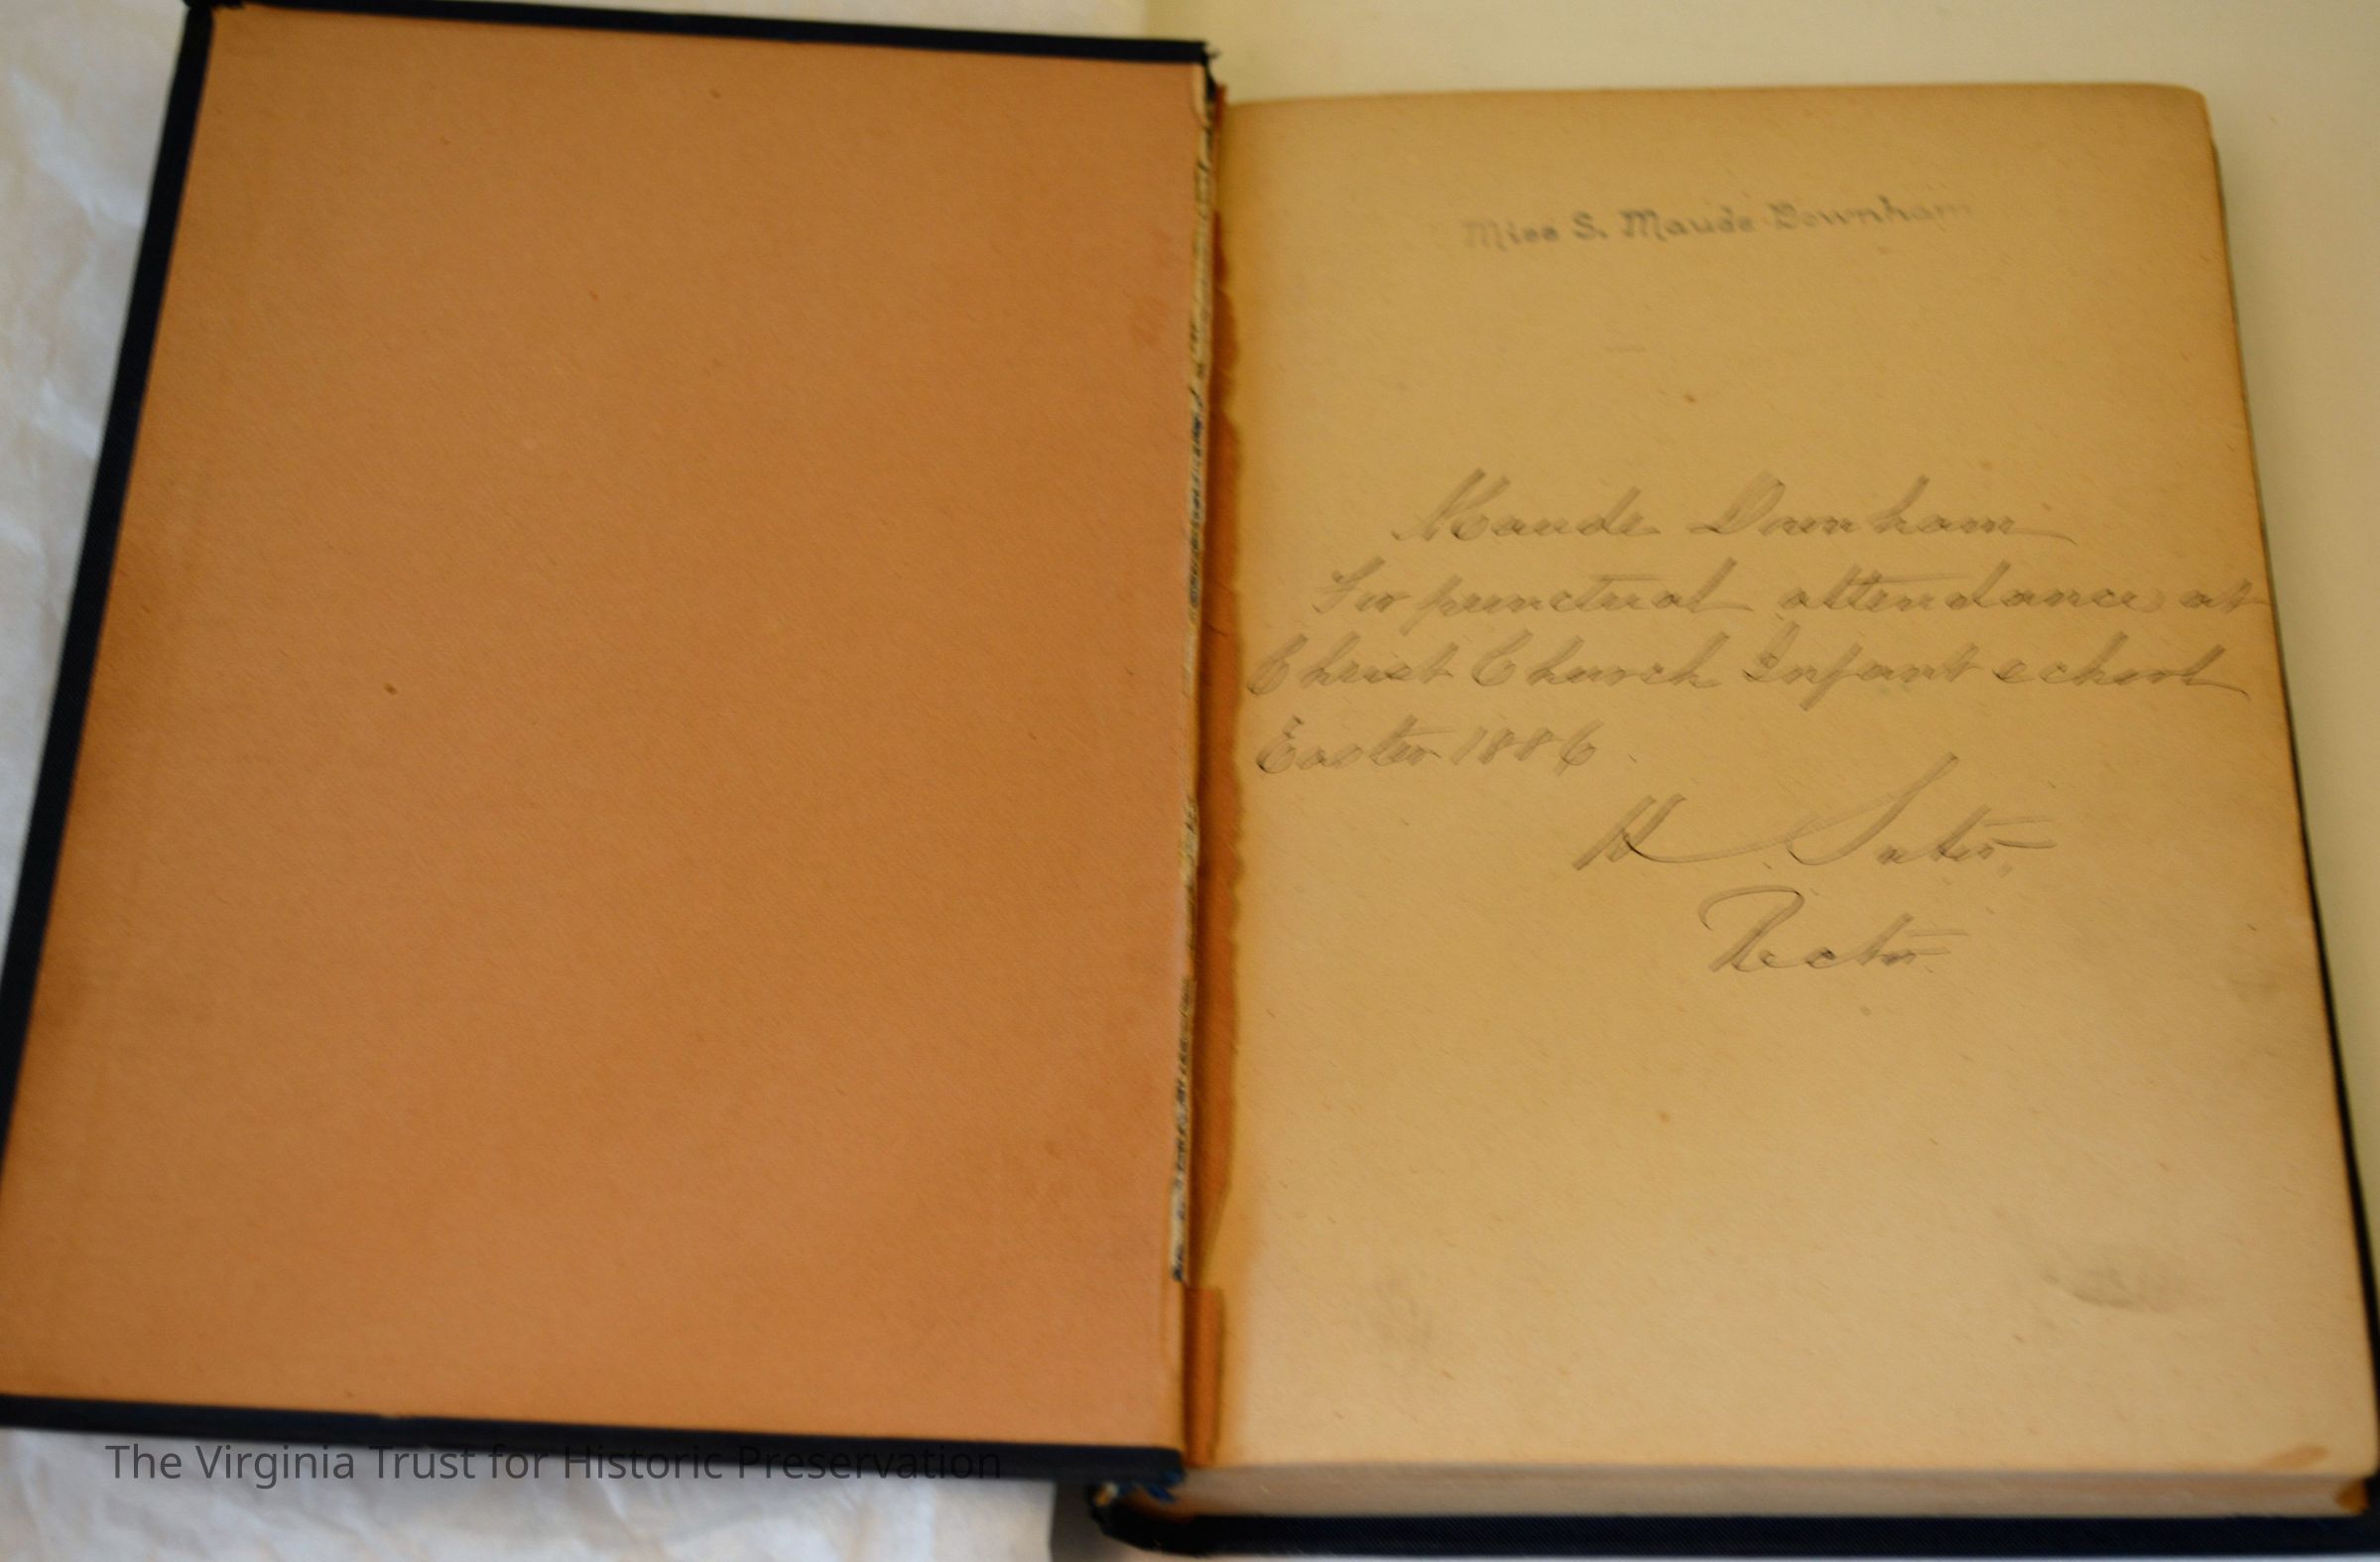 Miss S. Maude Downham
Maude Downham
For punctual attendance at
Christ Church Infant school
Easter 1886.
H. Suter,
Rector
The Virginia Trust for Historic Preservation